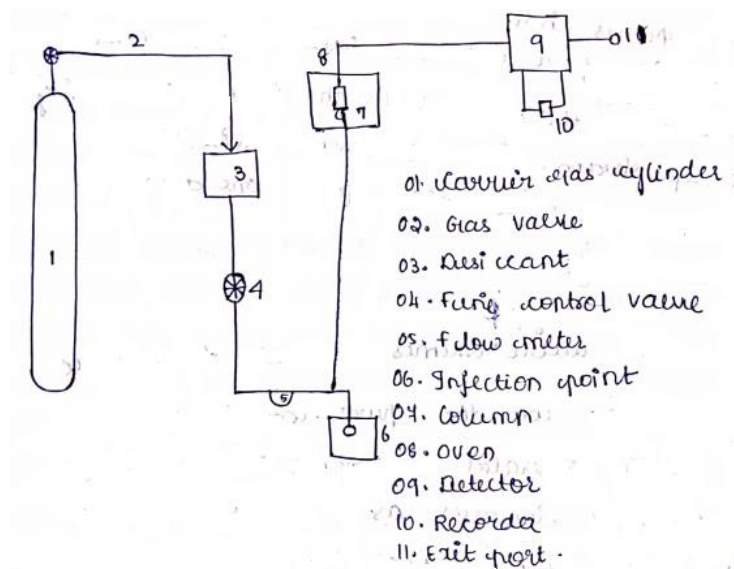 2
8
9
11
7
10
3
1
4
5
6
01. Carrier gas cylinder
02. Gas valve
03. Desiccant
04. Fine control valve
05. flow meter
06. Injection point
07. Column
08. Oven
09. Detector
10. Recorder
11. Exit port.